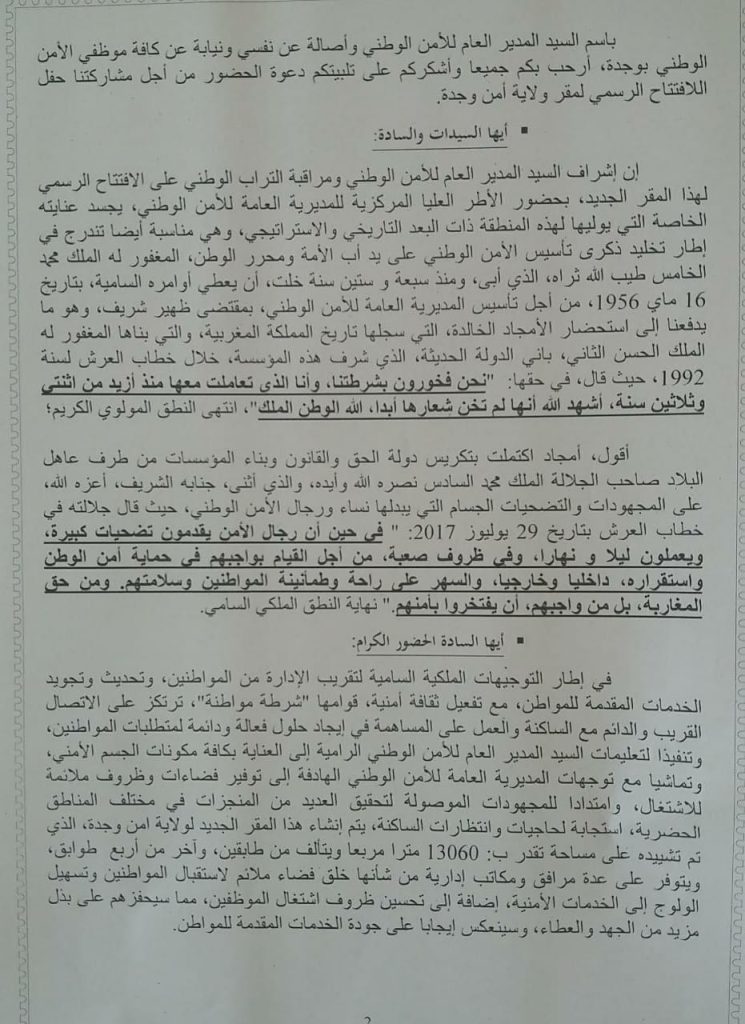 باسم السيد المدير العام للأمن الوطني وأصالة عن نفسي ونيابة عن كافة موظفي الأمن
الوطني بوجدة، أرحب بكم جميعا وأشكركم على تلبيتكم دعوة الحضور من أجل مشاركتنا حفل
اللافتتاح الرسمي لمقر ولاية أمن وجدة.
▪ أيها السيدات والسادة:
إن إشراف السيد المدير العام للأمن الوطني ومراقبة التراب الوطني على الافتتاح الرسمي
لهذا المقر الجديد، بحضور الأطر العليا المركزية للمديرية العامة للأمن الوطني، يجسد عنايته
الخاصة التي يوليها لهذه المنطقة ذات البعد التاريخي والاستراتيجي، وهي مناسبة أيضا تندرج في
إطار تخليد ذكرى تأسيس الأمن الوطني على يد أب الأمة ومحرر الوطن، المغفور له الملك محمد
الخامس طيب الله ثراه، الذي أبى، ومنذ سبعة و ستين سنة خلت، أن يعطي أوامره السامية، بتاريخ
16 ماي 1956، من أجل تأسيس المديرية العامة للأمن الوطني، بمقتضى ظهير شريف، وهو ما
يدفعنا إلى استحضار الأمجاد الخالدة، التي سجلها تاريخ المملكة المغربية، والتي بناها المغفور له
الملك الحسن الثاني، باني الدولة الحديثة، الذي شرف هذه المؤسسة، خلال خطاب العرش لسنة
1992، حيث قال، في حقها: "نحن فخورون بشرطتنا، وأنا الذي تعاملت معها منذ أزيد من اثنتي
وثلاثين سنة، أشهد الله أنها لم تخن شعارها أبدا، الله الوطن الملك"، انتهى النطق المولوي الكريم؛
أقول، أمجاد اكتملت بتكريس دولة الحق والقانون وبناء المؤسسات من طرف عاهل
البلاد صاحب الجلالة الملك محمد السادس نصره الله وأيده، والذي أثنى، جنابه الشريف، أعزه الله،
على المجهودات والتضحيات الجسام التي يبدلها نساء ورجال الأمن الوطني، حيث قال جلالته في
خطاب العرش بتاريخ 29 يوليوز 2017: " في حين أن رجال الأمن يقدمون تضحيات كبيرة،
ويعملون ليلا و نهارا، وفي ظروف صعبة، من أجل القيام بواجبهم في حماية أمن الوطن
واستقراره، داخليا وخارجيا، والسهر على راحة وطمأنينة المواطنين وسلامتهم. ومن حق
المغاربة، بل من واجبهم، أن يفتخروا بأمنهم." نهاية النطق الملكي السامي.
▪ أيها السادة الحضور الكرام:
في إطار التوجيهات الملكية السامية لتقريب الإدارة من المواطنين، وتحديث وتجويد
الخدمات المقدمة للمواطن، مع تفعيل ثقافة أمنية، قوامها "شرطة مواطنة"، ترتكز على الاتصال
القريب والدائم مع الساكنة والعمل على المساهمة في إيجاد حلول فعالة ودائمة لمتطلبات المواطنين،
وتنفيذا لتعليمات السيد المدير العام للأمن الوطني الرامية إلى العناية بكافة مكونات الجسم الأمني،
وتماشيا مع توجهات المديرية العامة للأمن الوطني الهادفة إلى توفير فضاءات وظروف ملائمة
للاشتغال، وامتدادا للمجهودات الموصولة لتحقيق العديد من المنجزات في مختلف المناطق
الحضرية، استجابة لحاجيات وانتظارات الساكنة، يتم إنشاء هذا المقر الجديد لولاية امن وجدة، الذي
تم تشييده على مساحة تقدر ب: 13060 مترا مربعا ويتألف من طابقين، وآخر من أربع طوابق،
ويتوفر على عدة مرافق ومكاتب إدارية من شأنها خلق فضاء ملائم لاستقبال المواطنين وتسهيل
الولوج إلى الخدمات الأمنية، إضافة إلى تحسين ظروف اشتغال الموظفين، مما سيحفزهم على بذل
مزيد من الجهد والعطاء، وسينعكس إيجابا على جودة الخدمات المقدمة للمواطن.
2